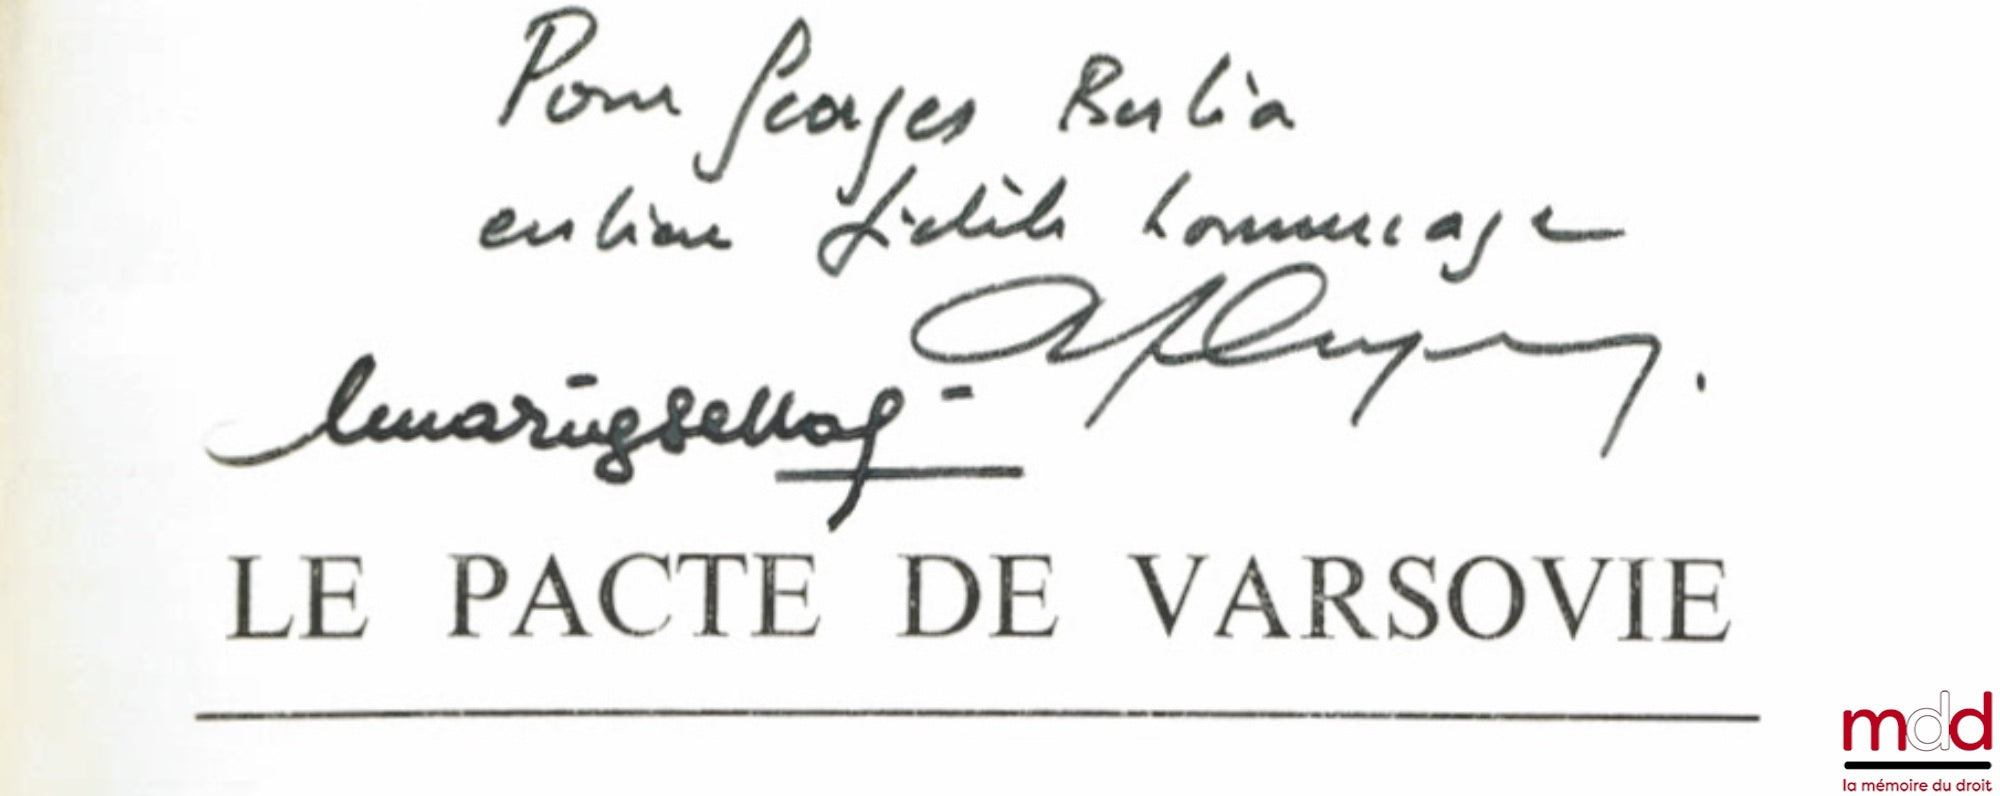 Pour Georges Berlia
en bien fidèle hommage
LE PACTE DE VARSOVIE
mdd
la mémoire du droit